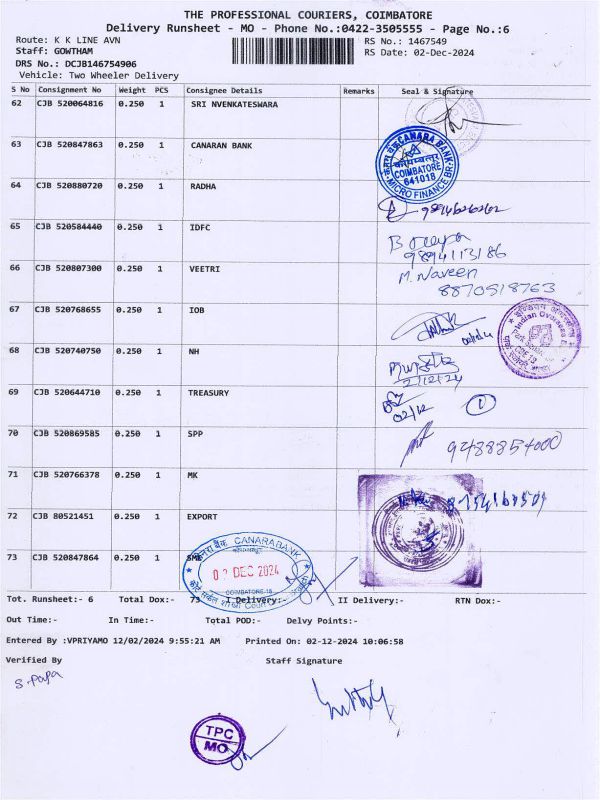 THE PROFESSIONAL COURIERS, COIMBATORE
Delivery Runsheet - MO - Phone No.:0422-3505555 - Page No.:6
Route: K K LINE AVN RS No.: 1467549
Staff: GOWTHAM RS Date: 02-Dec-2024
DRS No.: DCJB146754906
Vehicle: Two Wheeler Delivery
S No Consignment No Weight PCS Consignee Details Remarks Seal & Signature
62 CJB 520064816 0.250 1 SRI NVENKATESWARA
63 CJB 520847863 0.250 1 CANARAN BANK
CANARA BANK
COIMBATORE
641018
MICRO FINANCE BR
64 CJB 520880720 0.250 1 RADHA
65 CJB 520584440 0.250 1 IDFC
9894113186
66 CJB 520807300 0.250 1 VEETRI
M. Naveen
8870918763
67 CJB 520768655 0.250 1 IOB
Indian Overseas
68 CJB 520740750 0.250 1 NH
2/12/24
69 CJB 520644710 0.250 1 TREASURY
02/12 1
70 CJB 520869585 0.250 1 SPP
71 CJB 520766378 0.250 1 MK
72 CJB 80521451 0.250 1 EXPORT
73 CJB 520847864 0.250 1 SME
CANARA BANK
02 DEC 2024
COIMBATORE-18
Tot. Runsheet:- 6 Total Dox:- 73 I Delivery:- II Delivery:- RTN Dox:-
Out Time:- In Time:- Total POD:- Delvy Points:-
Entered By :VPRIYAMO 12/02/2024 9:55:21 AM Printed On: 02-12-2024 10:06:58
Verified By Staff Signature
S. Papa
TPC
MO